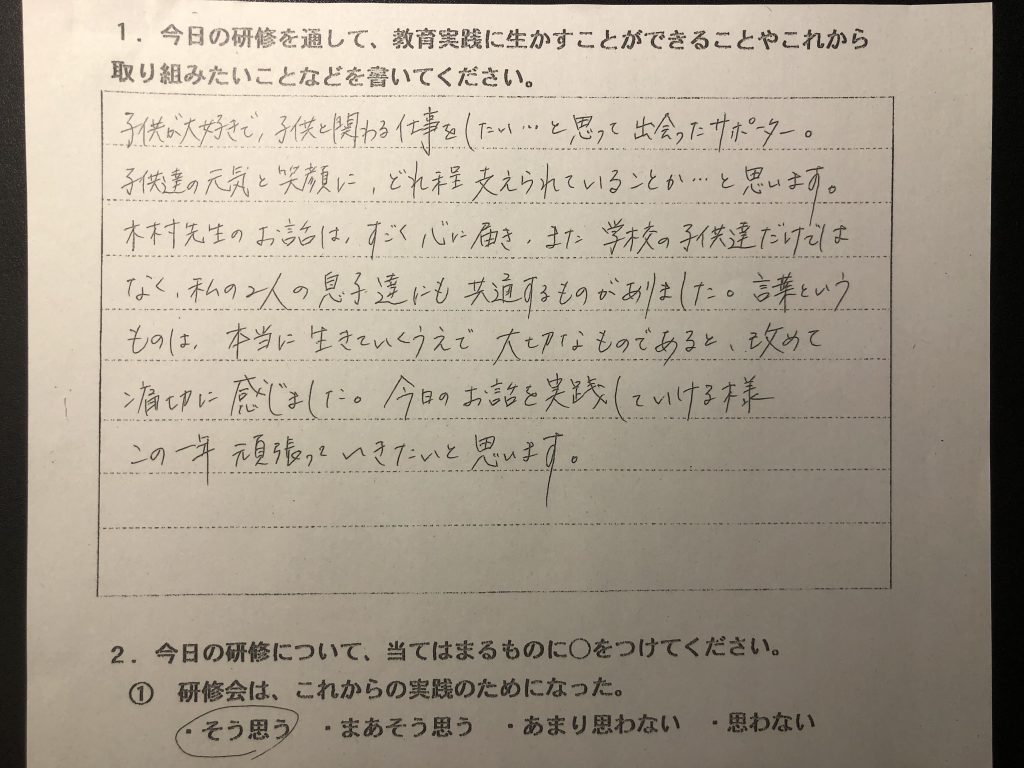 1．今日の研修を通して、教育実践に生かすことができることやこれから
取り組みたいことなどを書いてください。
子供が大好きで、子供と関わる仕事をしたい…と思って出会ったサポーター。
子供達の元気と笑顔に、どれ程支えられていることか…と思います。
木村先生のお話は、すごく心に届き、また学校の子供達だけでは
なく、私の2人の息子達にも共通するものがありました。言葉という
ものは、本当に生きていくうえで大切なものであると、改めて
痛切に感じました。今日のお話を実践していける様
この一年頑張っていきたいと思います。
2．今日の研修について、当てはまるものに○をつけてください。
① 研修会は、これからの実践のためになった。
・そう思う ・まあそう思う ・あまり思わない ・思わない